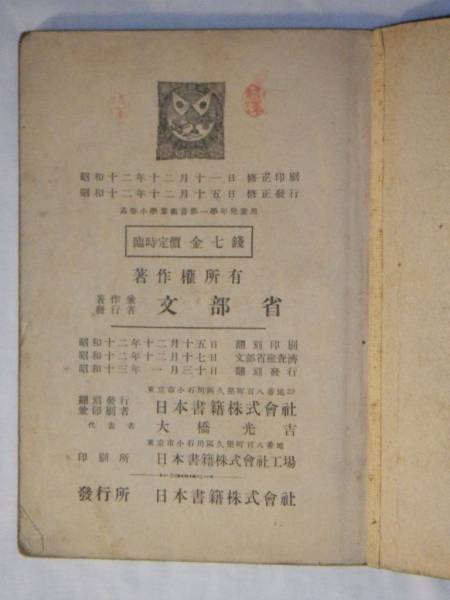 昭和十二年十二月十一日 修正印刷
昭和十二年十二月十五日 修正發行
高等小學算術書第一學年兒童用
臨時定價 金七錢
著作權所有
著作兼
發行者 文部省
昭和十二年十二月十五日 翻刻印刷
昭和十二年十二月十七日 文部省檢査濟
昭和十三年 一月三十日 翻刻發行
東京市小石川區久堅町百八番地
翻刻發行
兼印刷者 日本書籍株式會社
代表者 大橋光吉
東京市小石川區久堅町百八番地
印刷所 日本書籍株式會社工場
發行所 日本書籍株式會社